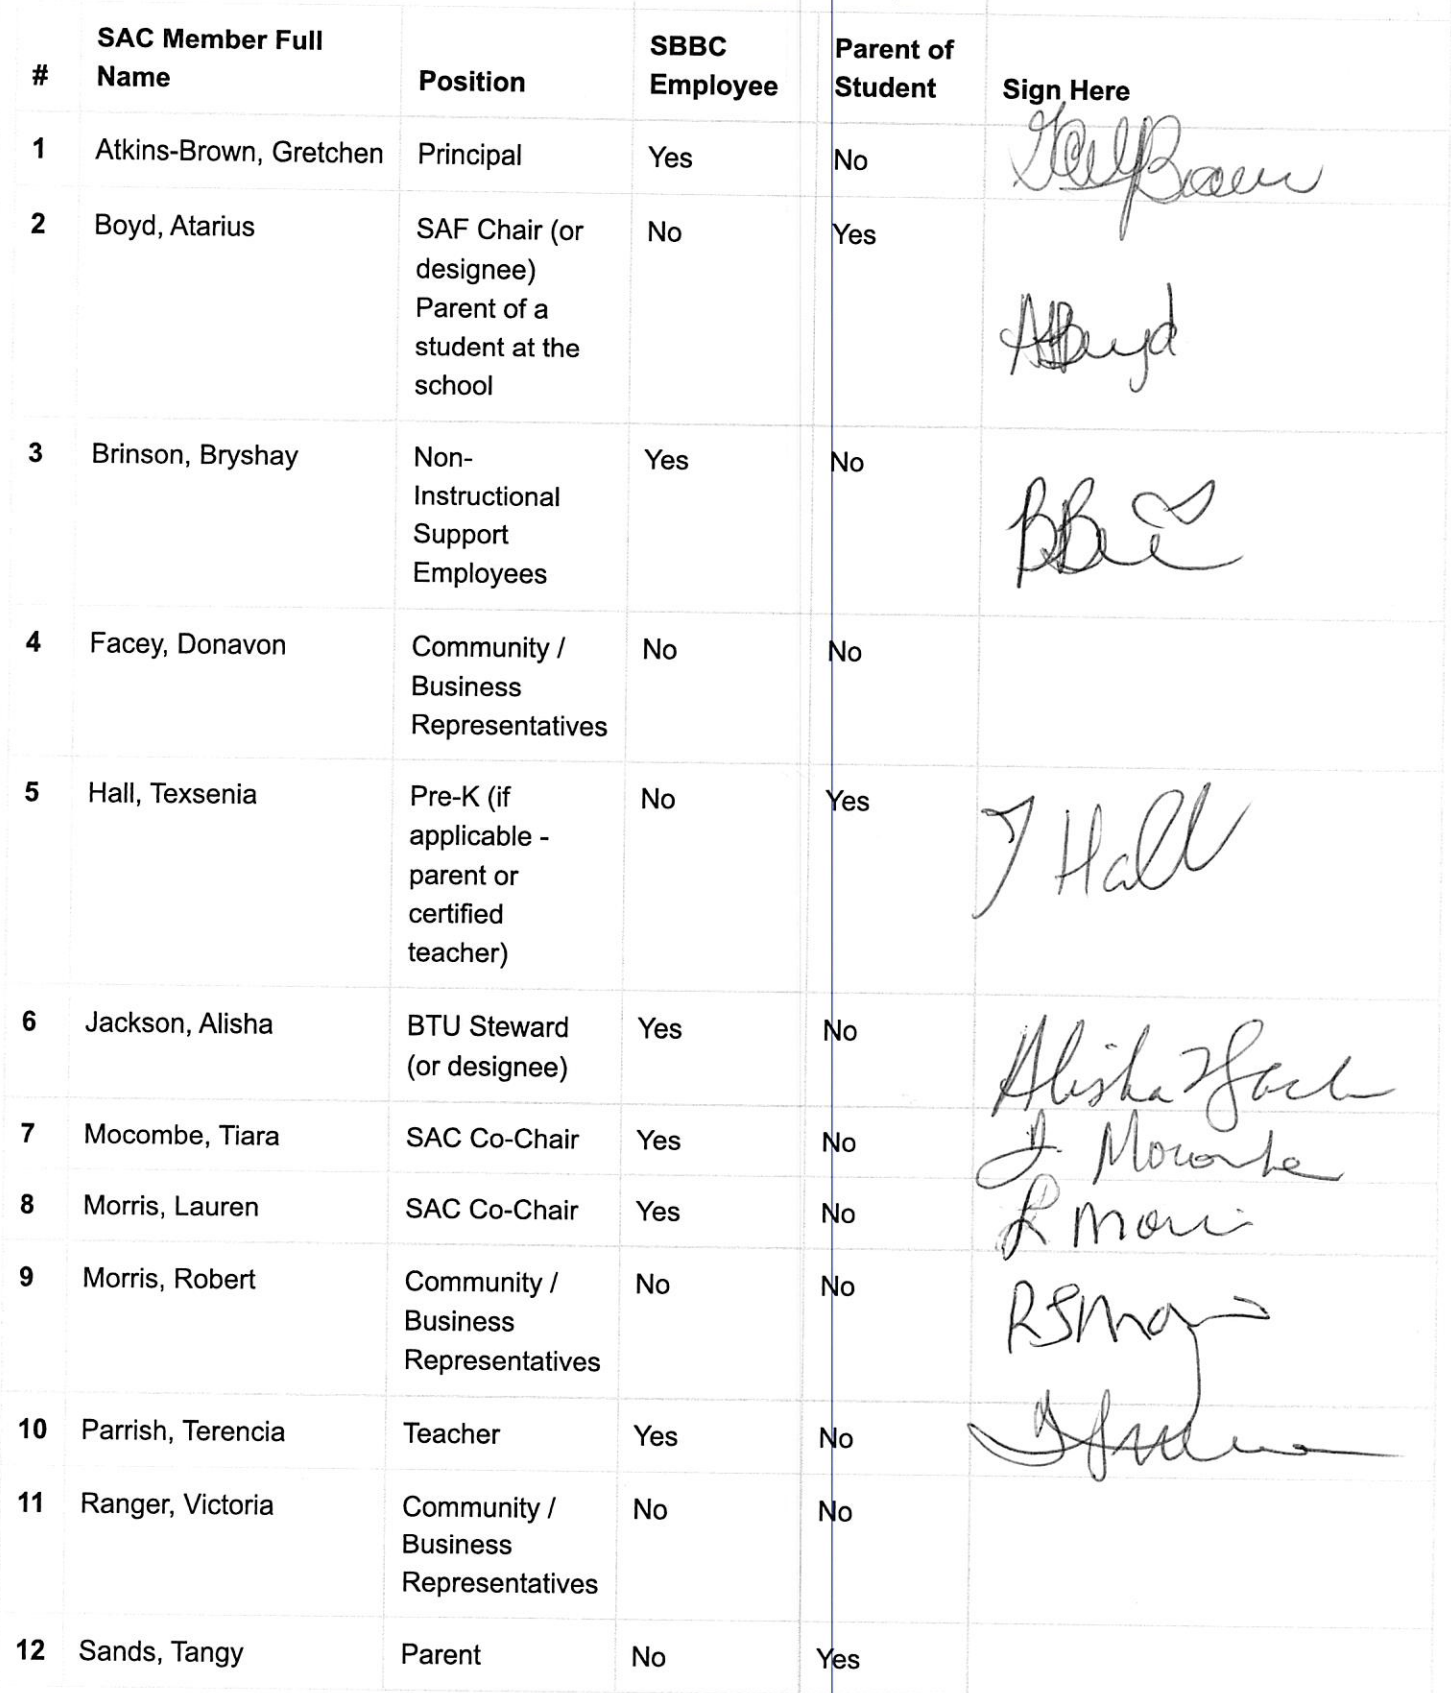 # SAC Member Full Name Position SBBC Employee Parent of Student Sign Here
1 Atkins-Brown, Gretchen Principal Yes No
2 Boyd, Atarius SAF Chair (or No Yes
designee)
Parent of a
student at the
school
ABoyd
3 Brinson, Bryshay Non- Yes No
Instructional
Support
Employees
4 Facey, Donavon Community / No No
Business
Representatives
5 Hall, Texsenia Pre-K (if No Yes
applicable -
parent or
certified
teacher)
T Hall
6 Jackson, Alisha BTU Steward Yes No
(or designee)
Alisha
7 Mocombe, Tiara SAC Co-Chair Yes No T. Mocombe
8 Morris, Lauren SAC Co-Chair Yes No L Morris
9 Morris, Robert Community / No No
Business
Representatives
10 Parrish, Terencia Teacher Yes No
11 Ranger, Victoria Community / No No
Business
Representatives
12 Sands, Tangy Parent No Yes